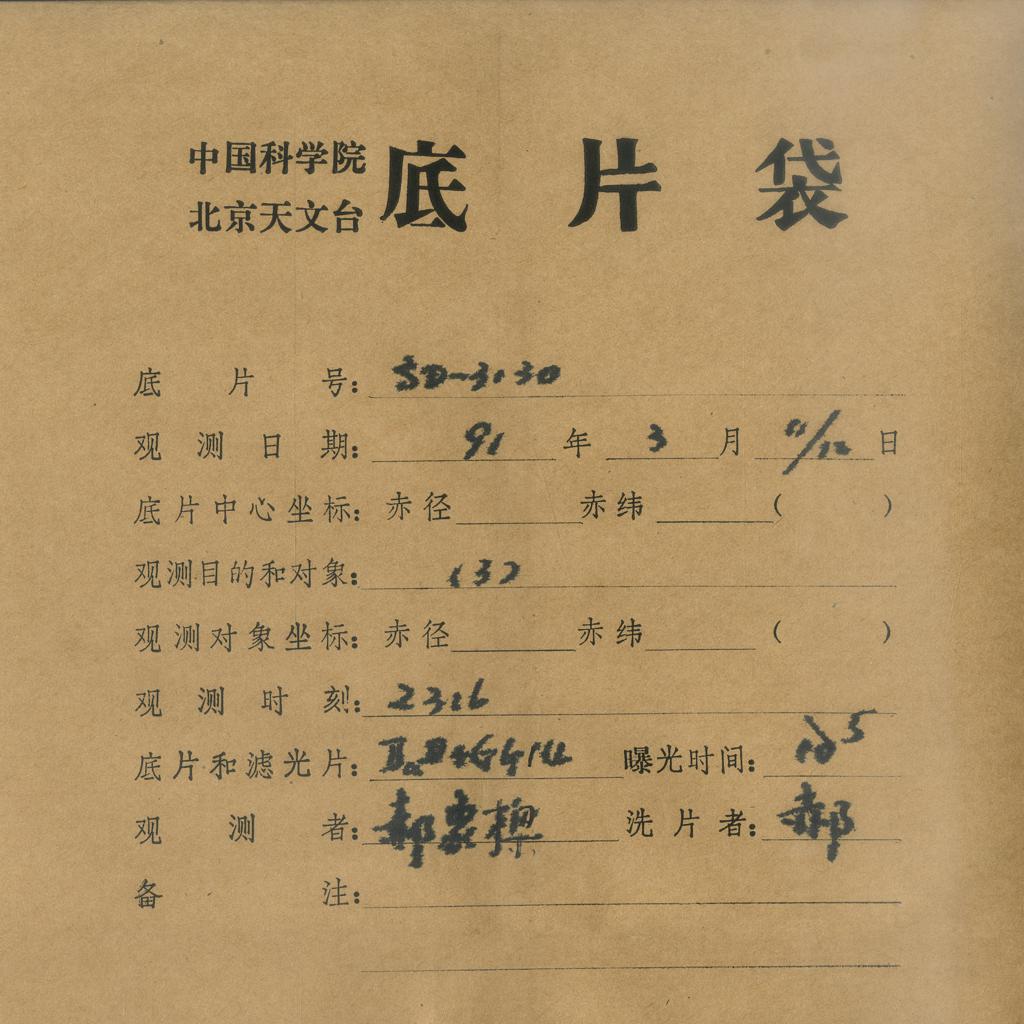 中国科学院
北京天文台
底片袋
底片号：SD-3130
观测日期：91年3月11/12日
底片中心坐标：赤径 赤纬 （ ）
观测目的和对象：
观测对象坐标：赤径 赤纬 （ ）
观测时刻：2316
底片和滤光片： 曝光时间：
观测者：郝象樑 洗片者：郝
备注：